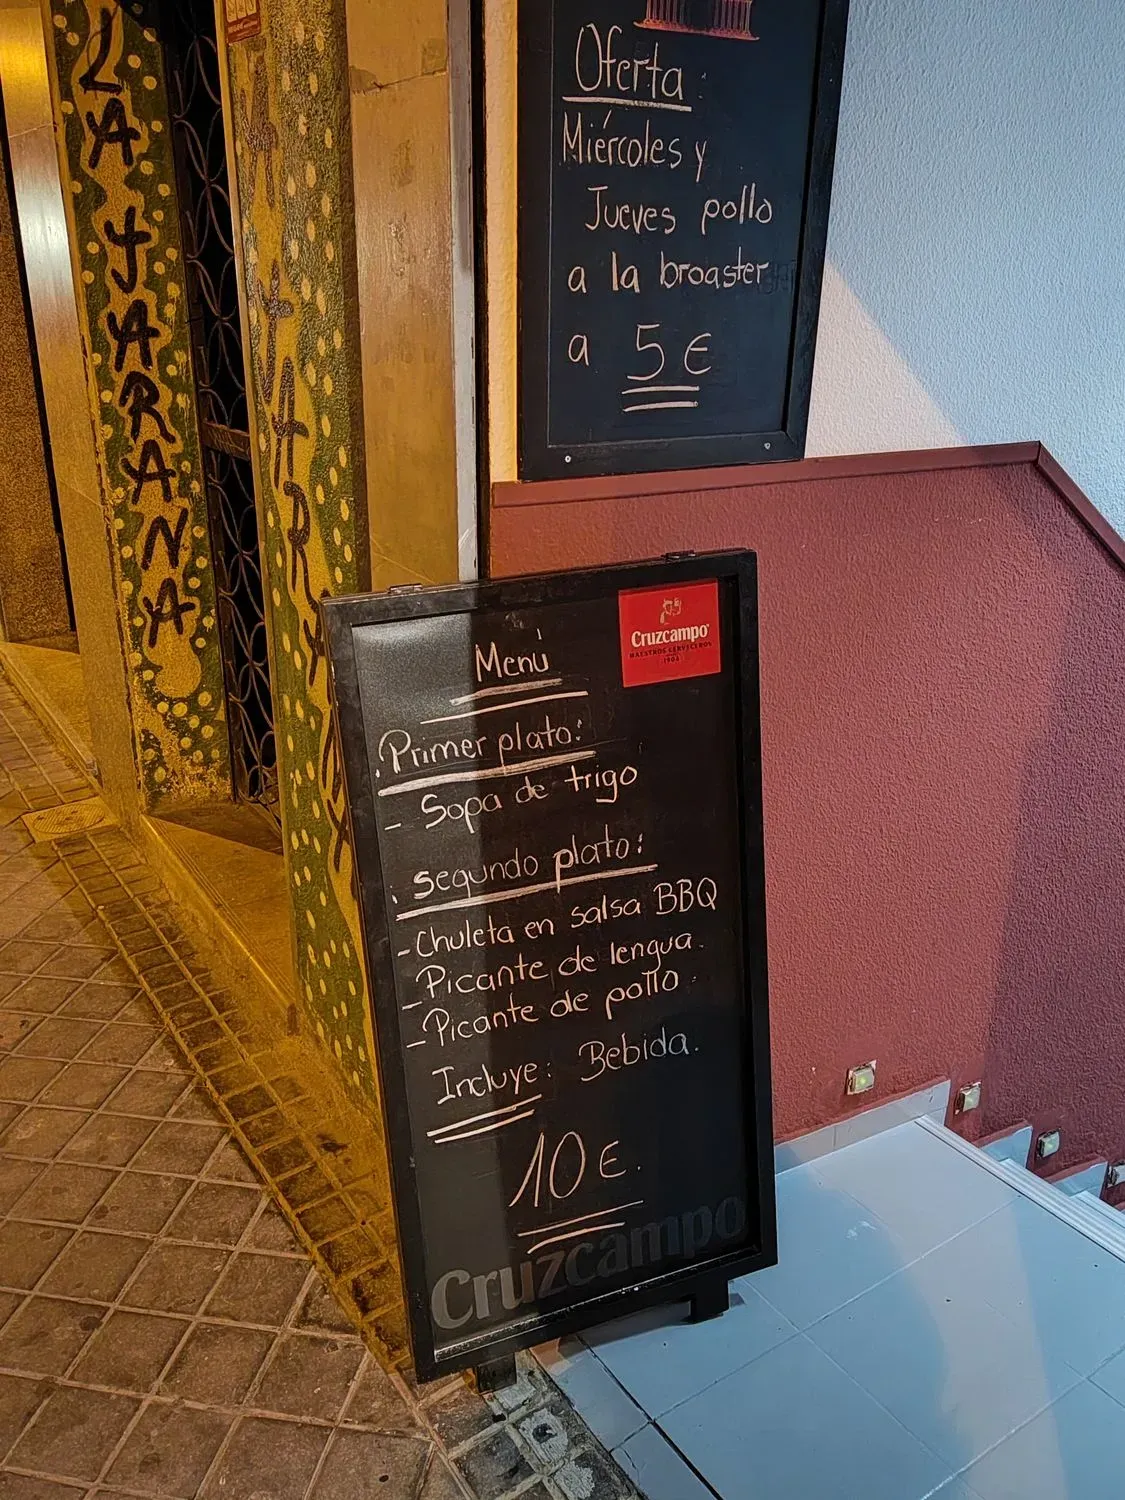 LA JARANA
Oferta:
Miércoles y
Jueves pollo
a la broaster
a 5 €
Menú
Cruzcampo
MAESTROS CERVECEROS
1904
. Primer plato:
- Sopa de trigo
. Segundo plato:
- Chuleta en salsa BBQ
- Picante de lengua.
- Picante de pollo.
Incluye: Bebida.
10 €.
Cruzcampo